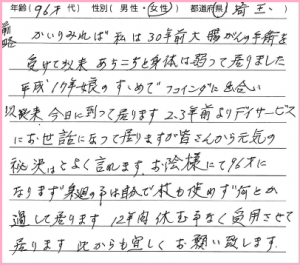 年齢(96才代) 性別(男性・女性) 都道府県 埼玉.
前略
かいりみれば 私は30年前大腸がんの手術を
受けて以来 あちこちと身体は弱って居りました
平成17年娘のすゝめでフコイダンに出合い
以来 今日に到って居ります 2.3年前よりデイサービス
にお世話になって居りますが皆さんから元気の
秘決はとよく言れます. お陰様にて96才に
なります 身廻の事は自分で杖も使めず何とか
過して居ります 12年間休む事なく愛用させて
居ります 此からも宜しく お願い致します.